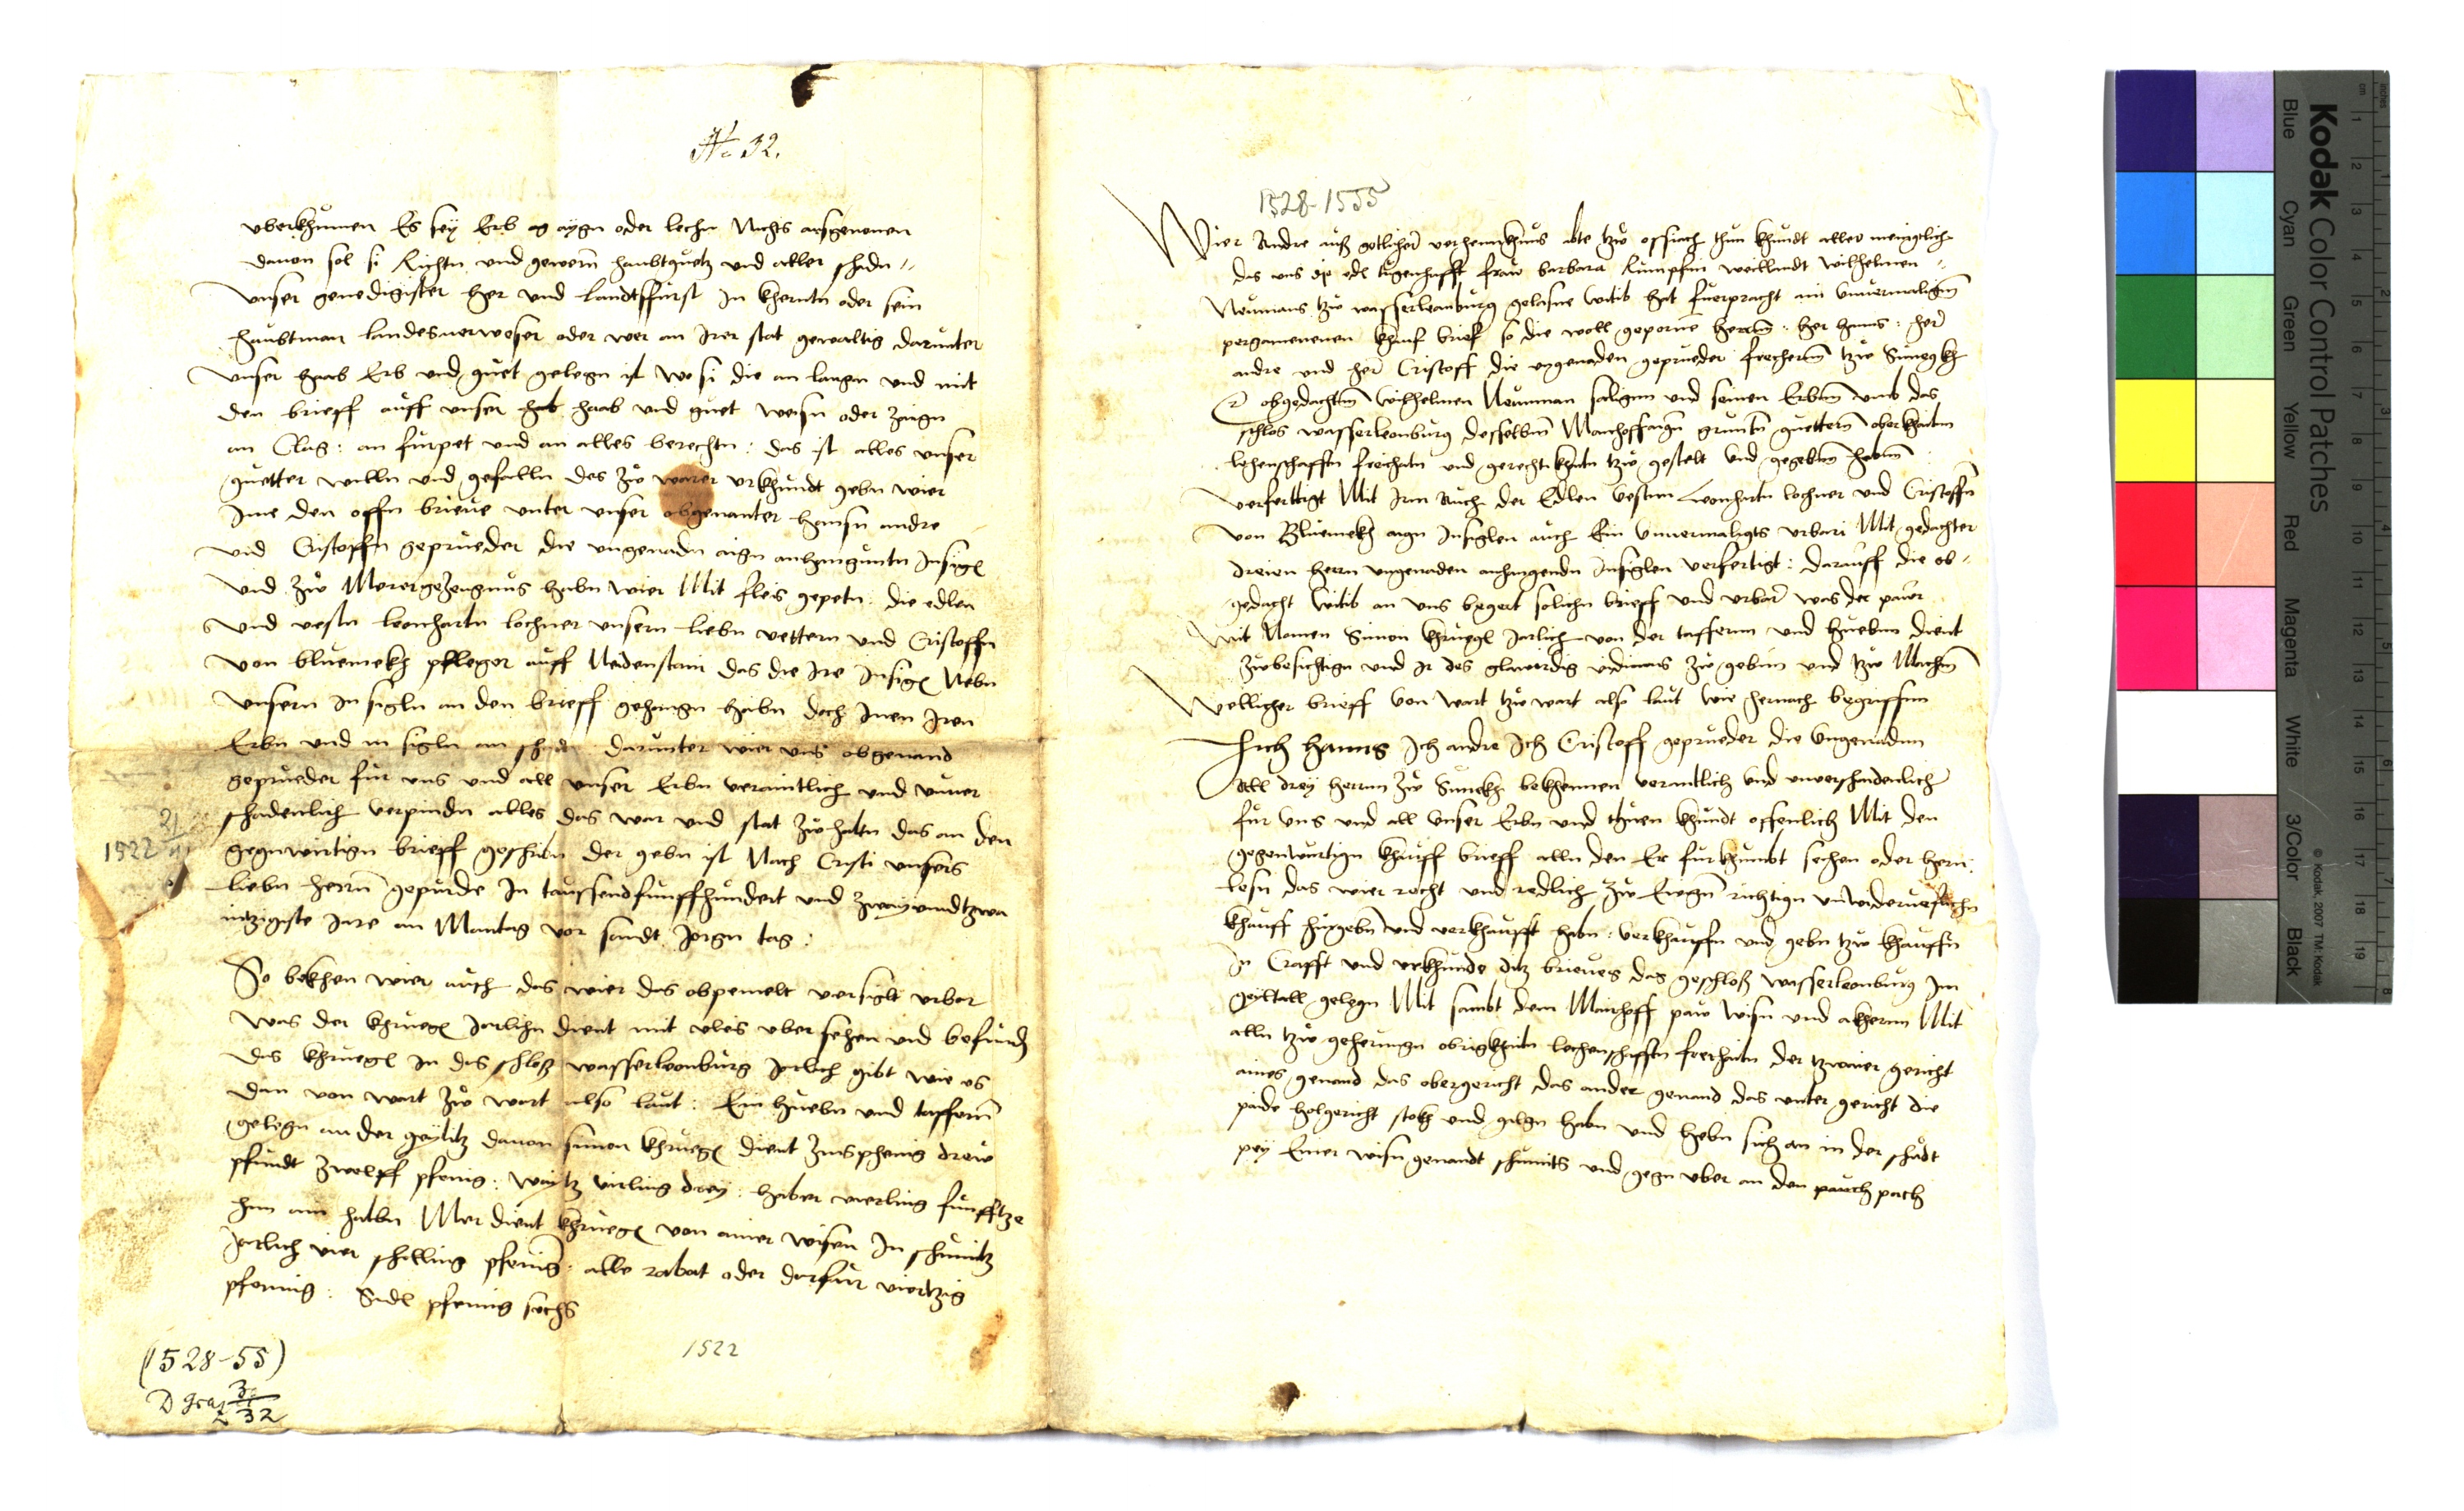 No 32.
uberkhumen Es sey Erb aygn oder lechn Nichts ausgenomen
davon sol si Richtn und gewern haubtguetz und aller schadn
Unser genedigister her und Landtsfurst In kherntn oder sein
haubtman landesverweser oder wer an Irer stat gewaltig darunter
Unser haab Erb und guet gelegn ist Wo si die an langn und mit
den brieff auff unser haab und guet weisn oder zaign
an Clag : an furpot und an alles berechtn : das ist alles unser
guetter willn und gefalln des zw warer urkhundt gebn wier
Ime den offn brieve unter unser obgenanter hansn andre
und Cristoffn geprueder die ungenadn aign anhangundn Insigl
und zw Merer gezeugnus habn wier Mit fleis gepetn die edlen
Und vestn leonhartn lochner unsern liebn vettern und Cristoffn
von bluemekh pfleger auff Neidenstain das die Ire Insigl Nebn
Unsern Insigln an den brieff gehangn habn doch Inen Iren
Erbn und Insigln an schadn darunter wier uns obgenand
geprueder fur uns und all unser Erbn veraintlich und unver
schadenlich verpindn alles das war und stat zw haltn das an den
gegnwirtign brieff geschribn der gebn ist Nach Cristi unsers
liebn herrn gepurde In taussendfunffhundert und zwayundtzwa
intzigiste Jare an Mantag vor sandt Jorgn tag :
So bekhen wier auch das wier das obgemelt versiglt urbar
was der khruegl Jarlichn dient mit vleis uber sehen und befunden
das khruegl In das schlosz wasserleonburg Jarlich gibt wie es
dan von wort zw wort also laut : Ein hueben und taffern
gelegn an der geylitz davon simon khruegl dient Zinsphenig drew
pfundt zwelff pfenig : waytz virling drey : haber vierling funfftze
hen ain halbn Mer dient khruegl von ainer wisen In schunitz
Jarlich vier schilling pfenig : alle robat oder darfur viertzig
pfennig : Sidl pfennig sechs
1522 21/4
(1528-55)
1522
32
1528-1555
Wier Andre ausz gotlicher verhenckhnus abte tzw ossiach thun khundt aller menigclich
das uns die edl tugenhafft fraw barbara Rumpfin weillandt wilhelmen
Neumans tzw wasserleonburg gelasne Witib hat fuerpracht ain Unvermaligten
pergamenenen khauf brief so die woll geporne herrn : her hans : her
andre und her Cristoff die ungenaden geprueder freyherrn tzw Sunegkh
obgedachtn Wilhelmen Neuman saligen und seinen Erbm umb das
schlos wasserleonburg desselbm Mairhoffaign gruntn guettern oberkhaitn
lehenschafftn freihaitn und gerechtikhaitn tzw gestelt und gegebm habm
verferttigt Mit Iren Auch der Edlen Vesten Leonhartn lochner und Cristoffn
von Bluemekh aign Insiglen auch Ein Unvermaligts urbari Mit gedachter
dreien herrn ungenaden anhangendn Insiglen verfertigt : darauff die ob
gedacht Witib an uns begert solichn brieff und urbar was der pawr
Mit Namen Simon khruegl Jarlich von der taffernn und huebm dient
zubesichtign und Ir des glawirdig vidimus zw gebm und tzw Machm
Wellicher brieff von wart tzw wart also laut wie hernach begriffen
Ich hanns Ich andre Ich Cristoff geprueder die Ungenaden
All drey herrnn zw Sunekh bekhennen veraintlich und unverschaidenlich
fur Uns und all Unser Erbn und thuen khundt offenlich Mit den
gegenwurtign khauff brieff alln den Er furkhumbt sechen oder hern
lesn das wier recht und redlich zw Ewign richtign unwiderueflichn
khauff hingebn und verkhaufft habn : verkhauffn und gebn tzw khauffn
In Crafft und urkhundt ditz brieves das geschlosz wasserleonburg Im
geiltall gelegn Mit sambt dem Mairhoff paw wisn und akhern Mit
alln tzw geherungn obrigkhaitn lechenschafftn freihaitn der tzwaier gericht
aines genand das obergericht das ander genand das unter gericht die
paide halgericht stokh und galgn habn und hebn sich an in der schadt
pey Einer wisn genandt schunits und gegn uber an den pauch pach
Kodak Color Control Patches
Blue Cyan Green Yellow Red Magenta White 3/Color Black
© Kodak, 2007 TM: Kodak
cm 1 2 3 4 5 6 7 8 9 10 11 12 13 14 15 16 17 18 19
inches 1 2 3 4 5 6 7 8